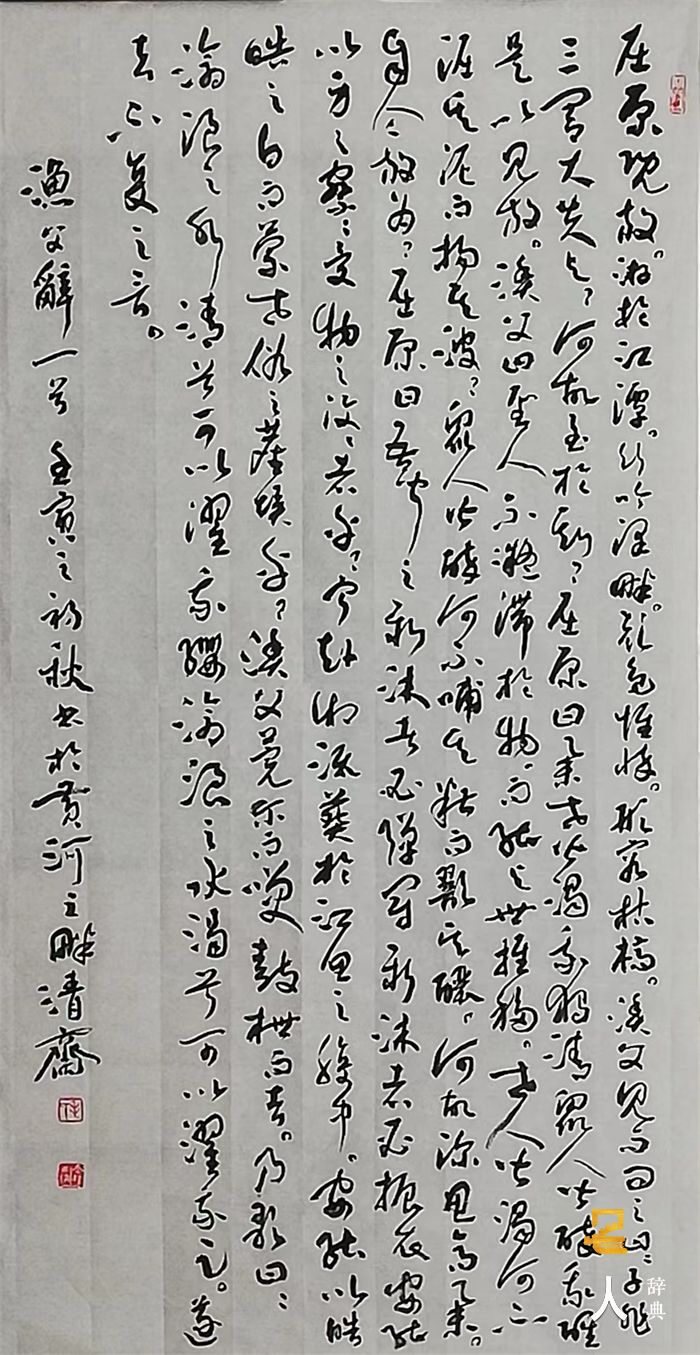 屈原既放。游於江潭。行吟澤畔。顏色憔悴。形容枯槁。漁父見而問之曰：子非
三閭大夫與？何故至於斯？屈原曰舉世皆濁我獨清眾人皆醉我醒
是以見放。漁父曰聖人不凝滯於物。而能與世推移。世人皆濁何不
淈其泥而揚其波？眾人皆醉何不哺其糟而歠其醨。何故深思高舉。
自令放為？屈原曰吾聞之新沐者必彈冠新沐者必振衣安能
以身之察〻受物之汶〻者乎？寧赴湘流葬於江魚之腹中。安能以皓
皓之白而蒙世俗之塵埃乎？漁父莞爾而笑鼓枻而去。乃歌曰：
滄浪之水清兮可以濯我纓滄浪之水濁兮可以濯我足。遂
去不復之言。
漁父辭一首 壬寅之初秋書於黃河之畔清齋
人
辞典